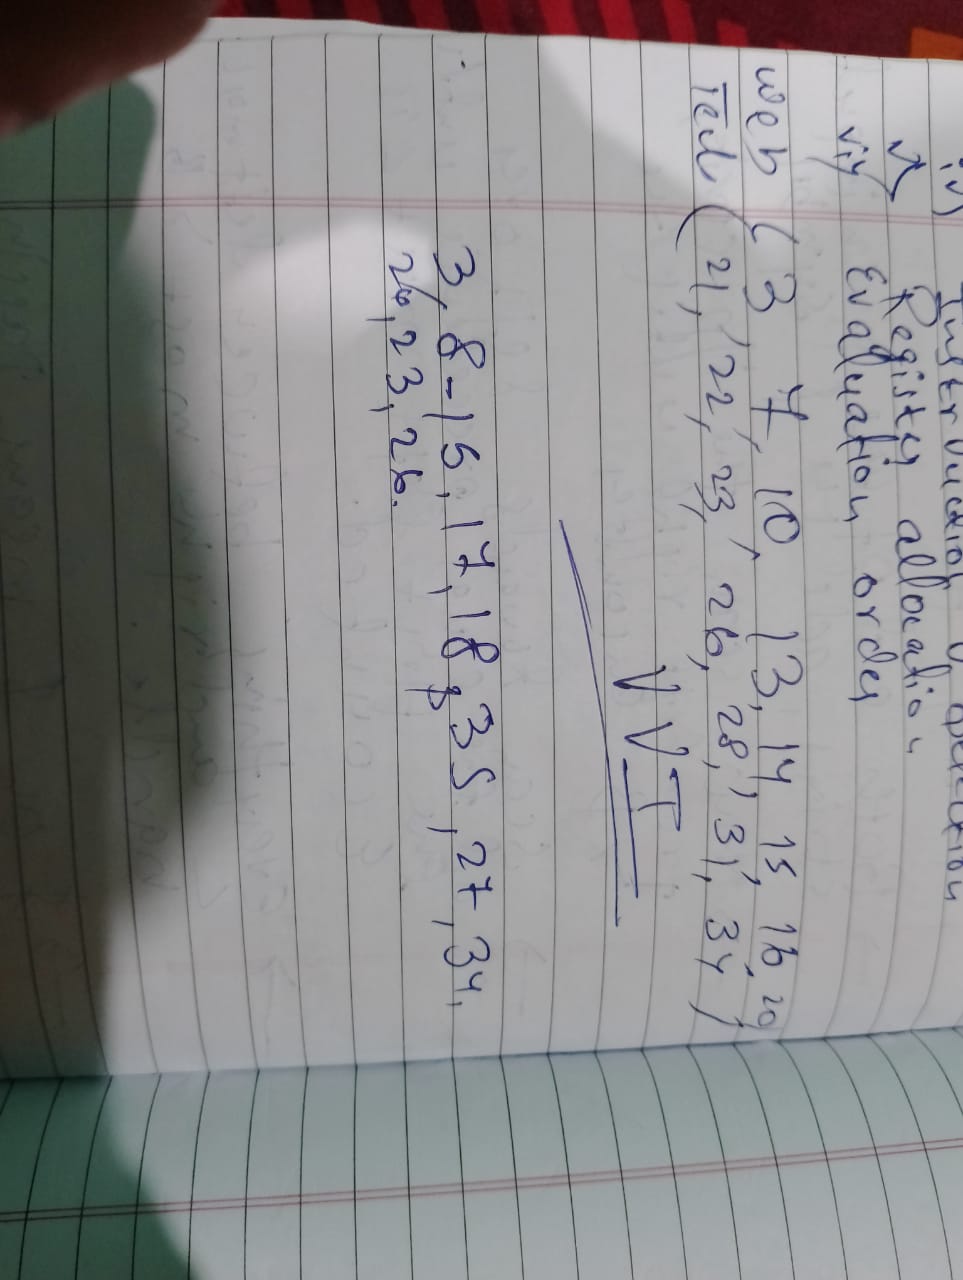 iv) Instruction selection
v) Register allocation
vi) Evaluation order
web (3, 7, 10, 13, 14, 15, 16, 20,
Tech (21, 22, 23, 26, 28, 31, 34)
VVI
3, 8-15, 17, 18, 35, 27, 34,
23, 26.